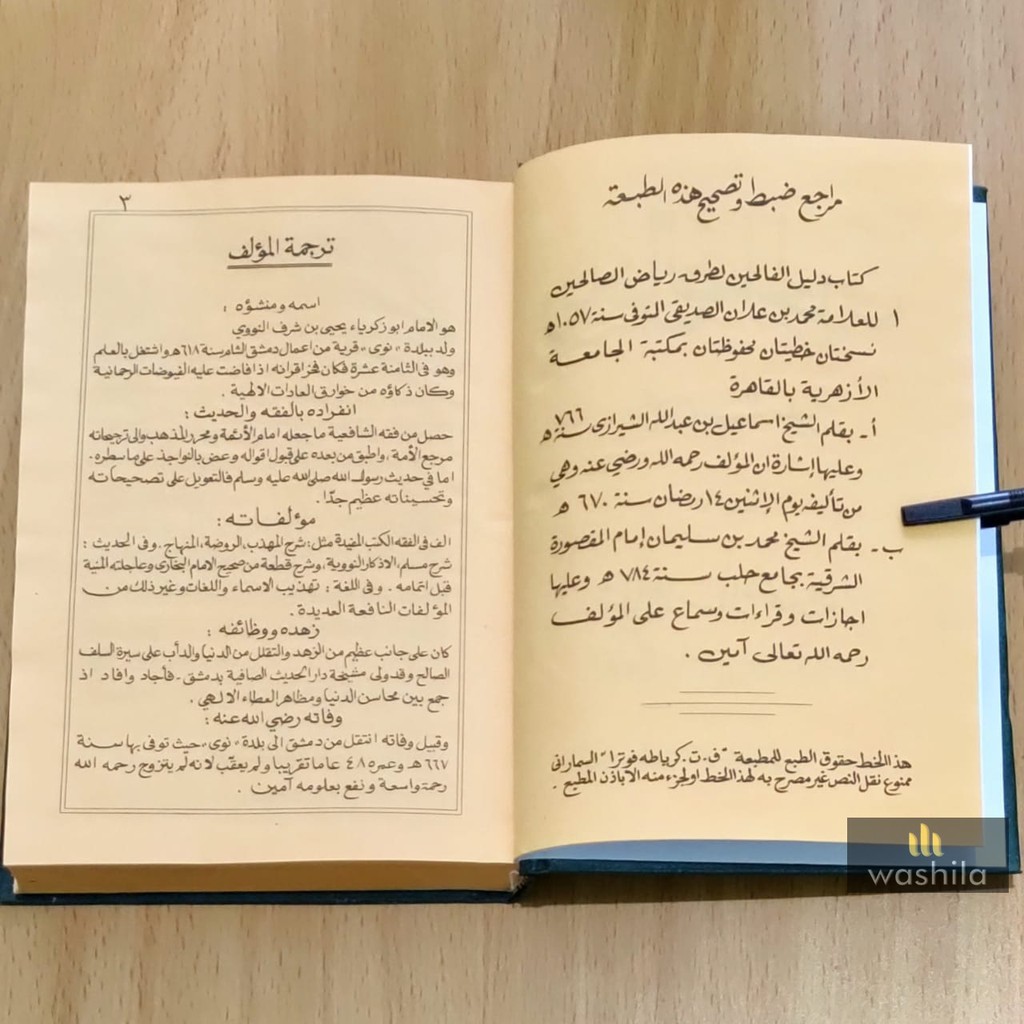 مراجع ضبط وتصحيح هذه الطبعة
كتاب دليل الفالحين لطرق رياض الصالحين
١ للعلامة محمد بن علان الصديقى المتوفى سنة ١٠٥٧ ه
نسختان خطيتان محفوظتان بمكتبة الجامعة
الأزهرية بالقاهرة
أ- بقلم الشيخ اسماعيل بن عبدالله الشيرازى سنة ٧٦٦ ه
وعليها إشارة ان المؤلف رحمه الله ورضي عنه وهي
من تأليفه يوم الإثنين ١٤ رمضان سنة ٦٧٠ ه
ب- بقلم الشيخ محمد بن سليمان إمام المقصورة
الشرقية بجامع حلب سنة ٧٨٤ ه وعليها
اجازات وقراءات وسماع على المؤلف
رحمه الله تعالى آمين .
هذ الخط حقوق الطبع للمطبعة "ف.ت. كرياطه فوترا" السمارانى
ممنوع نقل النص غير مصرح به لهذ الخط اولجزء منه الاباذن المطبع .
٣
ترجمة المؤلف
اسمه ومنشؤه :
هو الامام ابو زكرياء يحيى بن شرف النووي
ولد ببلدة "نوى" قرية من اعمال دمشق الشام سنة ٦١٨ ه واشتغل بالعلم
وهو فى الثامنة عشرة فكان فخر اقرانه اذ افاضت عليه الفيوضات الرحمانية
وكان ذكاؤه من خوارق العادات الالهية .
انفراده بالفقه والحديث :
حصل من فقه الشافعية ما جعله امام الأئمة ومحرر المذهب والى ترجيحاته
مرجع الأمة، واطبق من بعده على قبول اقواله وعض بالنواجذ على ما سطره .
اما فى حديث رسول الله صلى الله عليه وسلم فالتعويل على تصحيحاته
وتحسيناته عظيم جدّا .
مؤلفاته :
الف فى الفقه الكتب المفيدة مثل : شرح المهذب، الروضة، المنهاج . وفى الحديث :
شرح مسلم، الاذكار النووية، وشرح قطعة من صحيح الامام البخارى وعاجلته المنية
قبل اتمامه . وفى اللغة : تهذيب الاسماء واللغات وغير ذلك من
المؤلفات النافعة العديدة .
زهده ووظائفه :
كان على جانب عظيم من الزهد والتقلل من الدنيا والدأب على سيرة السلف
الصالح وقد ولى مشيخة دار الحديث الصافية بدمشق - فأجاد وافاد اذ
جمع بين محاسن الدنيا ومظاهر العطاء الالهي .
وفاته رضي الله عنه :
وقبيل وفاته انتقل من دمشق الى بلدة "نوى" حيث توفى بها سنة
٦٦٧ ه وعمره ٤٨ عاما تقريبا ولم يعقّب لانه لم يتزوج رحمه الله
رحمة واسعة ونفع بعلومه آمين .
washila